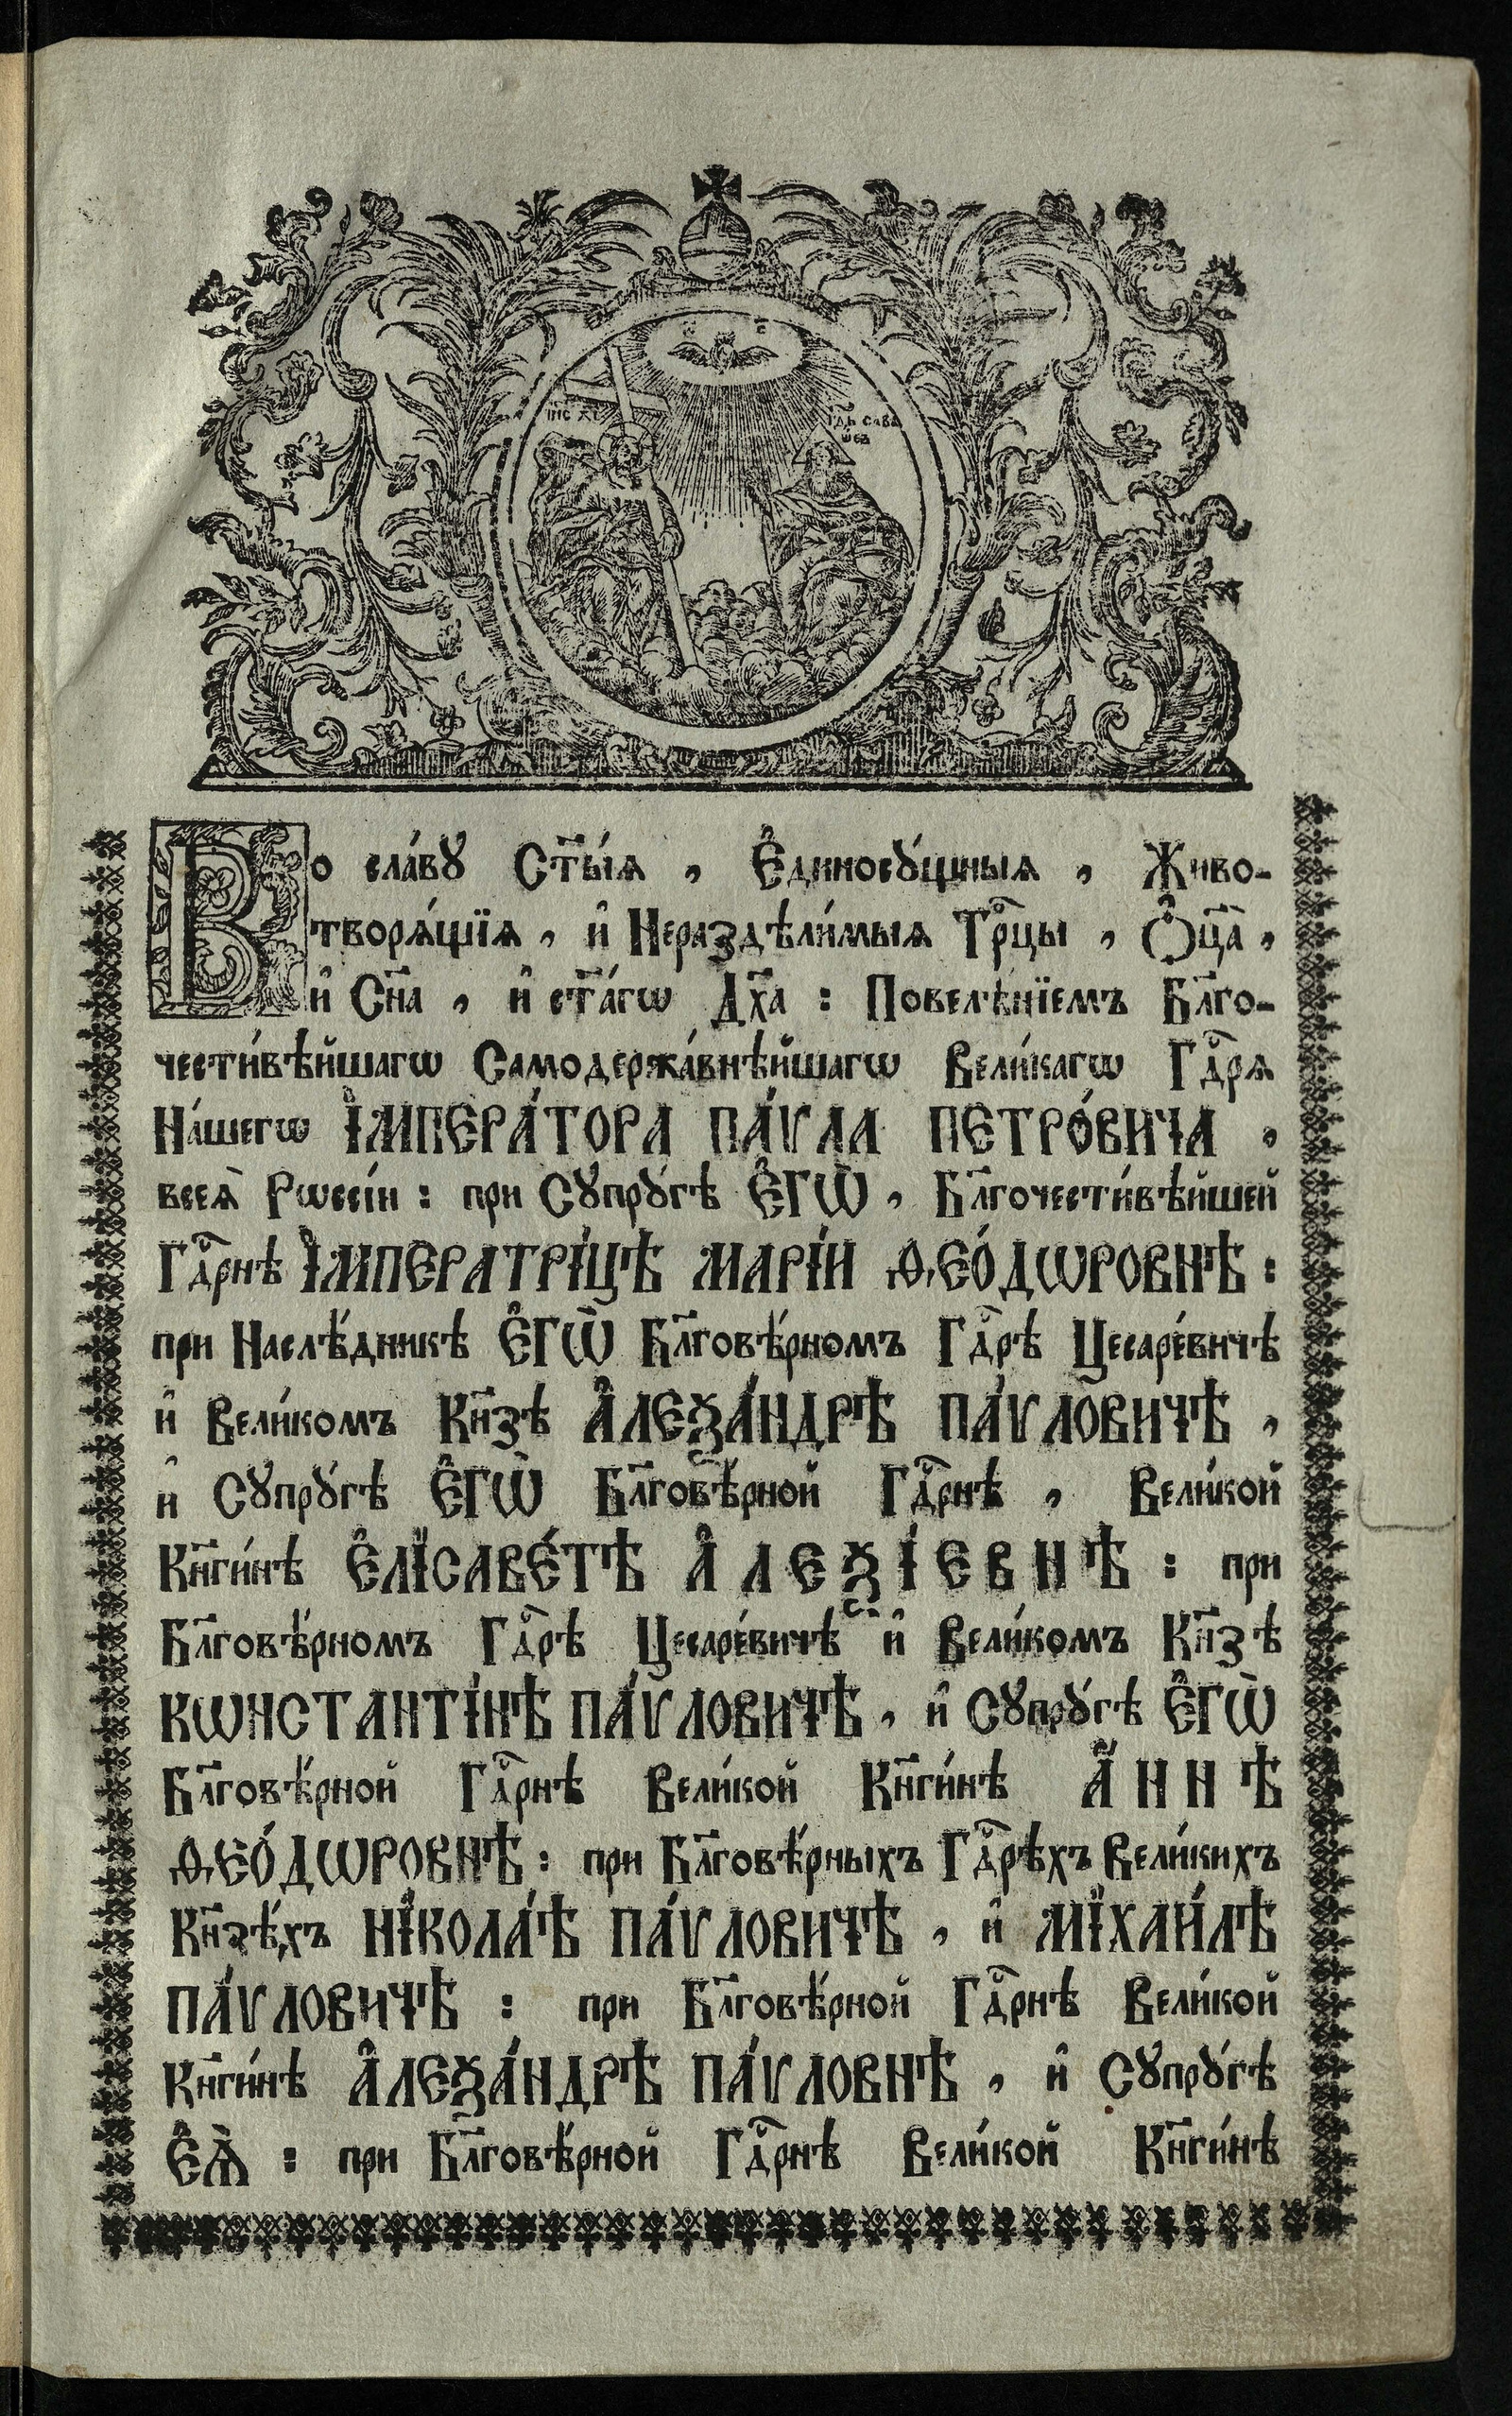 І҆И҃С ХС
Гдⷭ҇ь сава
ѡѳъ
Во сла́вꙋ Ст҃ы́ѧ, Є҆диносꙋ́щныѧ, Живо-
творѧ́щїѧ, и҆ Нераздѣли́мыѧ Трⷪ҇цы, Ѻ҆ц҃а̀,
и҆ Сн҃а, и҆ ст҃а́гѡ Дх҃а: Повелѣ́нїемъ Бл҃го-
чести́вѣйшагѡ Самодержа́внѣйшагѡ Вели́кагѡ Гдⷭ҇рѧ
На́шегѡ І҆МПЕРА́ТОРА ПА́ѴЛА ПЕТРО́ВИЧА,
всеѧ̀ Рѡссі́и: при Сꙋпрꙋ́гѣ Є҆ГѠ̀, Бл҃гочести́вѣйшей
Гдⷭ҇рнѣ І҆МПЕРАТРІ́ЦѢ МАРІ́И ѲЕО́ДѠРОВНѢ:
при Наслѣ́дникѣ Є҆ГѠ̀ Бл҃говѣ́рномъ Гдⷭ҇рѣ Цесаре́вичѣ
и҆ Вели́комъ Кн҃зѣ А҆ЛЕѮА́НДРѢ ПА́ѴЛОВИЧѢ,
и҆ Сꙋпрꙋ́гѣ Є҆ГѠ̀ Бл҃говѣ́рной Гдⷭ҇рнѣ, Вели́кой
Кн҃ги́нѣ Є҆ЛІСАВЕ́ТѢ А҆ЛЕѮІ́ЕВНѢ: при
Бл҃говѣ́рномъ Гдⷭ҇рѣ Цесаре́вичѣ и҆ Вели́комъ Кн҃зѣ
КѠНСТАНТІ́НѢ ПА́ѴЛОВИЧѢ, и҆ Сꙋпрꙋ́гѣ Є҆ГѠ̀
Бл҃говѣ́рной Гдⷭ҇рнѣ Вели́кой Кн҃ги́нѣ А҆́ННѢ
ѲЕО́ДѠРОВНѢ: при Бл҃говѣ́рныхъ Гдⷭ҇рѣхъ Вели́кихъ
Кн҃зѣ́хъ НІКОЛА́Ѣ ПА́ѴЛОВИЧѢ, и҆ МІХАИ́ЛѢ
ПА́ѴЛОВИЧѢ: при Бл҃говѣ́рной Гдⷭ҇рнѣ Вели́кой
Кн҃ги́нѣ А҆ЛЕѮА́НДРѢ ПА́ѴЛОВНѢ, и҆ Сꙋпрꙋ́гѣ
Є҆Ѧ̀: при Бл҃говѣ́рной Гдⷭ҇рнѣ Вели́кой Кн҃ги́нѣ